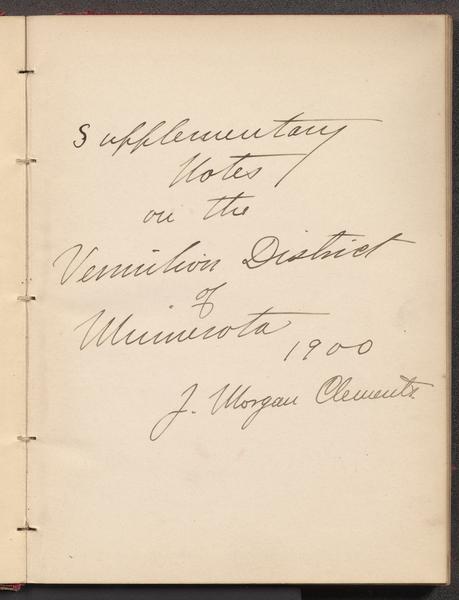 Supplementary
Notes
on the
Vermilion District
of
Minnesota
1900
J. Morgan Clements.